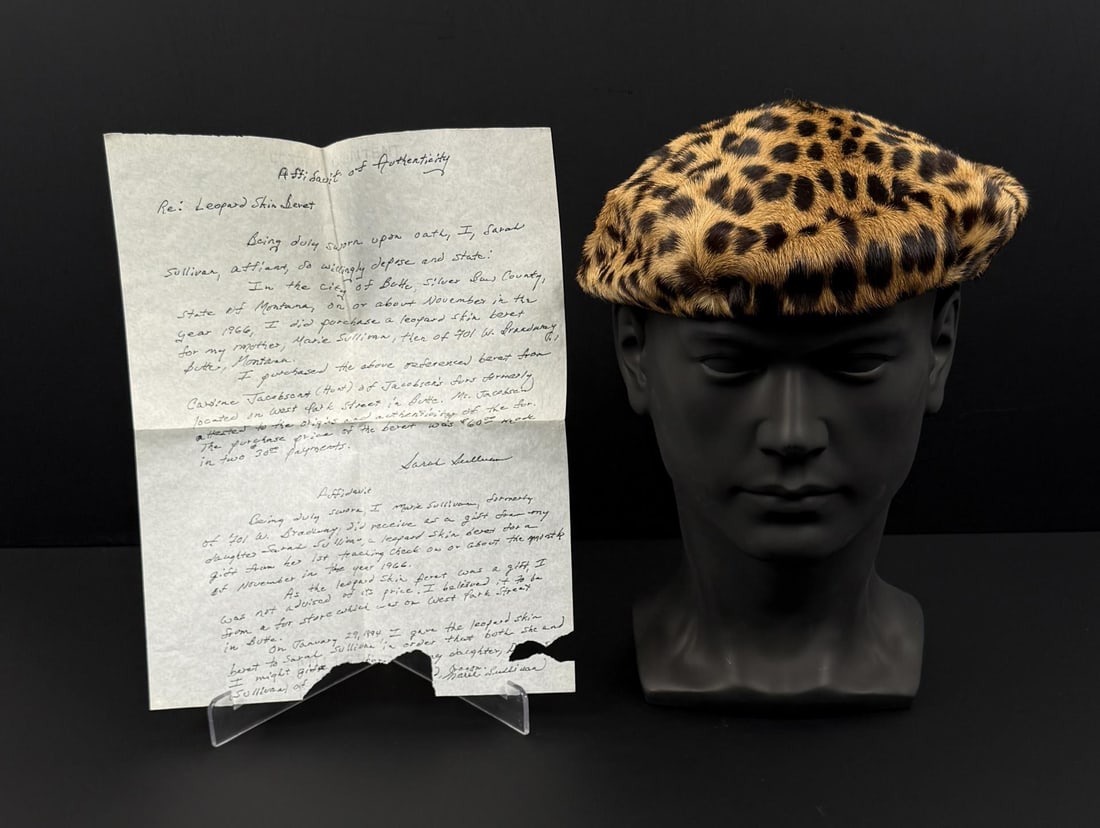 Affidavit of Authenticity
Re: Leopard Skin Beret
Being duly sworn upon oath, I, Sarah
Sullivan, affiant, do willingly depose and state:
In the city of Butte, Silver Bow County,
State of Montana, on or about November in the
year 1966, I did purchase a leopard skin beret
for my mother, Marie Sullivan, then of 701 W. Broadway,
Butte, Montana.
I purchased the above referenced beret from
Jacobsen (Hunt) of Jacobsen's furs formerly
located on West Park Street in Butte. Ms. Jacobsen
attested to the origin and authenticity of the fur.
The purchase price of the beret was $60.00 made
in two 30.00 payments.
Sarah Sullivan
Affidavit
Being duly sworn, I Marie Sullivan, formerly
of 701 W. Broadway, did receive as a gift from my
daughter Sarah Sullivan a leopard skin beret for a
gift from her 1st teaching check on or about the month
of November in the year 1966.
As the leopard skin beret was a gift, I
was not advised of its price. I believed it to be
from a fur store which was on West Park Street
in Butte.
On January 29, 1994 I gave the leopard skin
beret to Sarah Sullivan in order that both she and
I might give my daughter,
Sullivan, of